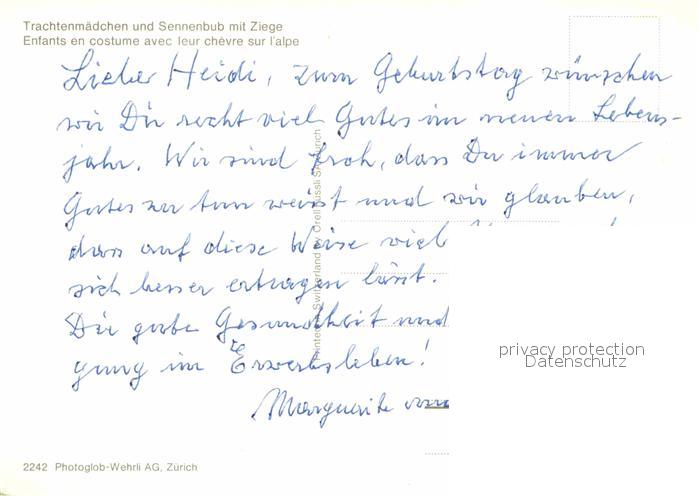 Trachtenmädchen und Sennenbub mit Ziege
Enfants en costume avec leur chèvre sur l'alpe
Liebe Heidi, zum Geburtstag wünschen
wir Dir recht viel Gutes im neuen Lebens-
jahr. Wir sind froh, dass Du immer
Gutes zu tun weisst und wir glauben,
dass auf diese Weise viel
sich besser ertragen lässt.
Dir gute Gesundheit und
gung im Erwerbsleben!
Marguerite
Printed in Switzerland by Orell Füssli SA Zürich
privacy protection
Datenschutz
2242 Photoglob-Wehrli AG, Zürich